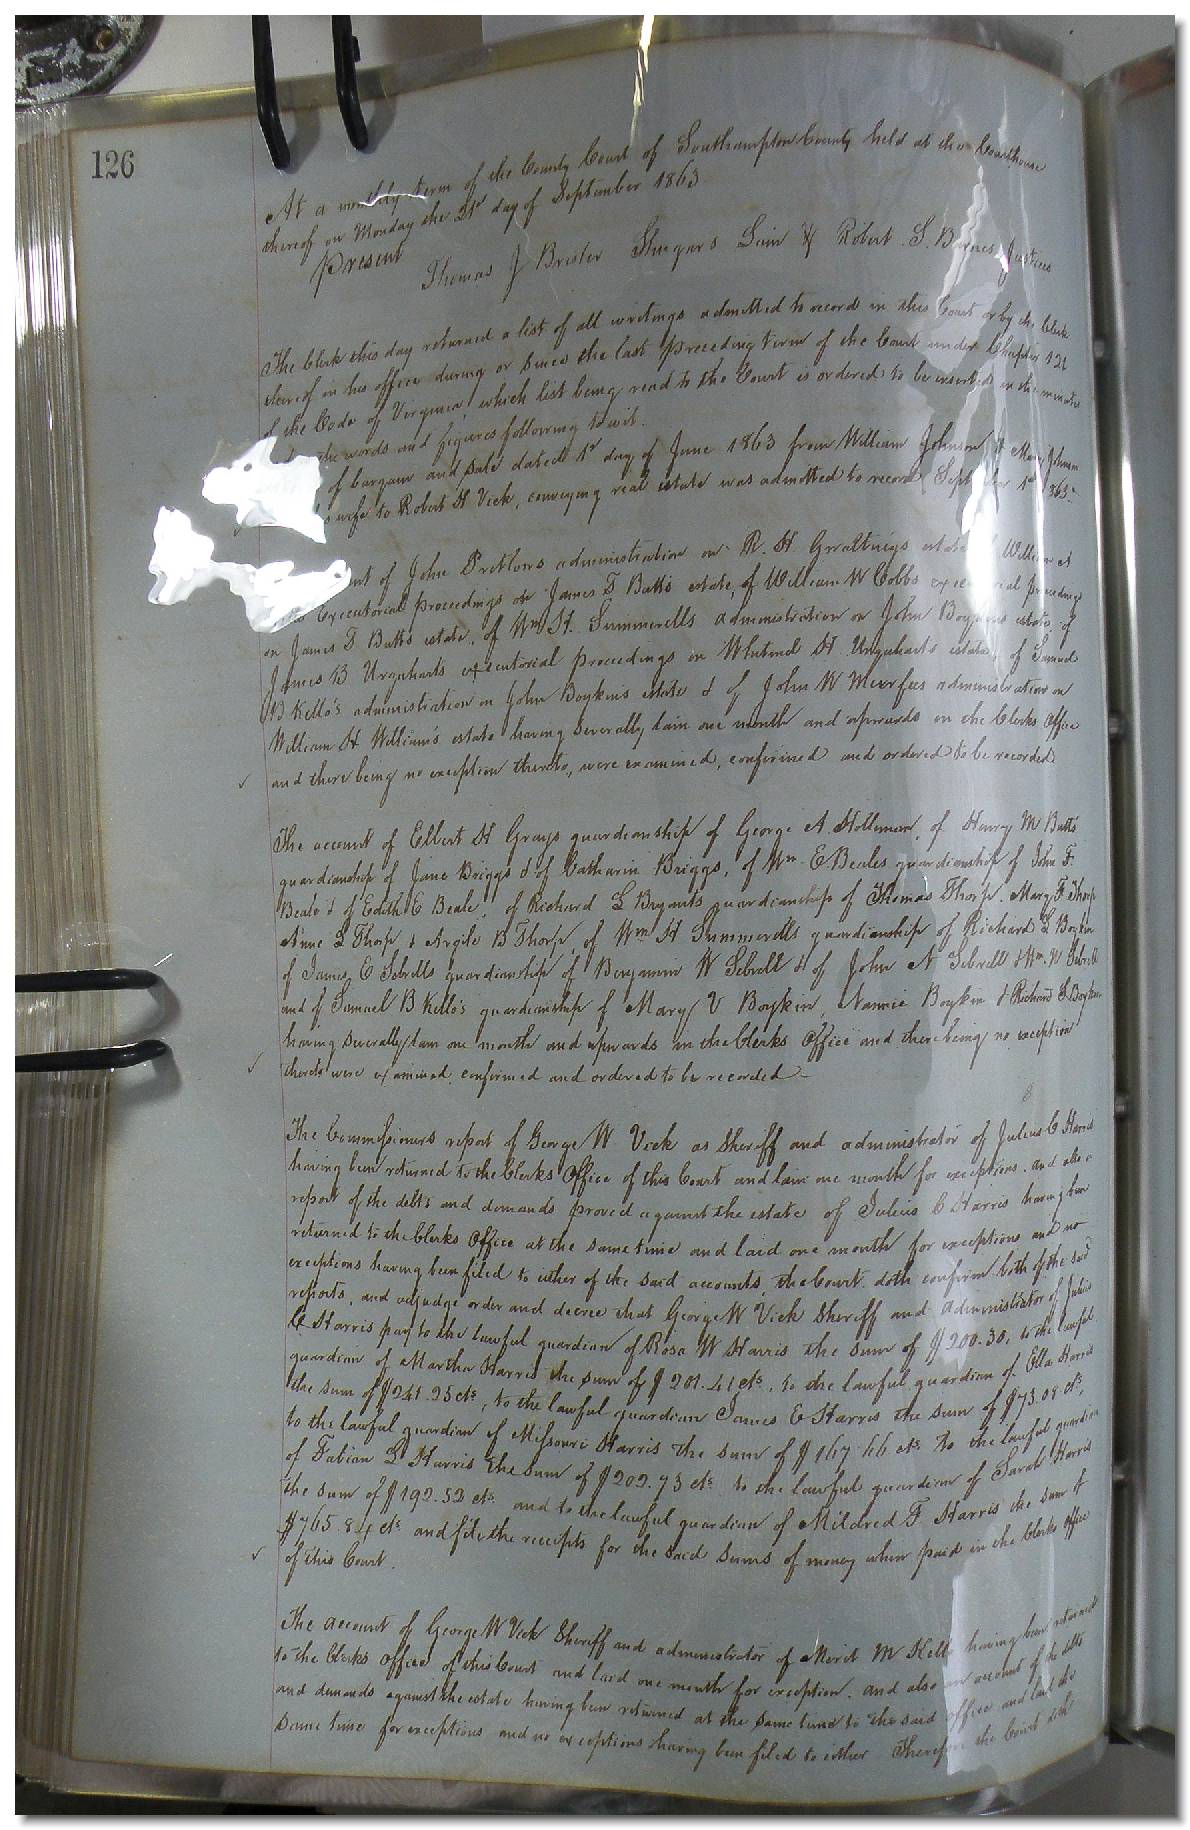 126
At a monthly term of the County Court of Southampton County held at the Courthouse
thereof on Monday the 21st day of September 1863
Present
Thomas J Brister Robert S. Barnes Justices
The Clerk this day returned a list of all writings admitted to record in this Court or by the Clerk
thereof in his office during or since the last preceding term of the Court under Chapter 121
of the Code of Virginia, which list being read to the Court is ordered to be inserted in the minutes
the words and figures following to wit.
of bargain and sale dated 1st day of June 1863 from William Johnson & Mary Johnson
wife to Robert H Vick, conveying real estate was admitted to record Sept 1st 1863.
of John Pretlows administration on R. H Gwaltneys estate William A
Executorial proceedings on James D Batts estate, of William W Cobbs executorial proceedings
on James D Batts estate, of Wm H. Summerells administration on John Boykins estate, of
James B Urquharts executorial proceedings on Whitmel H. Urquharts estate, of Samuel
B Kello's administration on John Boykins estate & of John W Murfees administration on
William H William's estate having severally lain one month and upwards in the Clerks Office
and there being no exception thereto, were examined, confirmed and ordered to be recorded
The account of Elbert H Grays guardianship of George A. Holleman, of Henry M Batts
guardianship of Jane Briggs & of Catharin Briggs, of Wm. E Beales guardianship of John F.
Beale & of Edith E Beale, of Richard L Bryants guardianship of Thomas Thorp. Mary F Thorp
Anne L Thorp & Argile B Thorp, of Wm H Summerells guardianship of Richard L Boykin
of James E Sebrells guardianship of Benjamin W Sebrell & of John N Sebrell & Wm. N Sebrell
and of Samuel B Kello's guardianship of Mary V Boykin, Nannie Boykin & Richard L Boykin
having severally lain one month and upwards in the Clerks Office and there being no exception
thereto were examined, confirmed and ordered to be recorded
The Commissioners report of George W Vick as Sheriff and administrator of Julius C Harris
having been returned to the Clerks Office of this Court and lain one month for exceptions. and also a
report of the debts and demands proved against the estate of Julius C Harris having been
returned to the Clerks Office at the same time and laid one month for exceptions and no
exceptions having been filed to either of the said accounts, the Court doth confirm both of the said
reports, and adjudge order and decree that George W Vick Sheriff and administrator of Julius
C Harris pay to the lawful guardian of Rosa W Harris the sum of $200.30, to the lawful
guardian of Martha Harris the sum of $201.41 cts., to the lawful guardian of Ella Harris
the sum of $241.25 cts, to the lawful guardian James E Harris the sum of $73.08 cts,
to the lawful guardian of Missouri Harris the sum of $167.66 cts. to the lawful guardian
of Fabian L Harris the sum of $202.73 cts. to the lawful guardian of Sarah Harris
the sum of $192.52 cts. and to the lawful guardian of Mildred F Harris the sum of
$765.84 cts and file the receipts for the said sums of money when paid in the Clerks office
of this Court.
The account of George W Vick Sheriff and administrator of Merit M Kello having been returned
to the Clerks Office of this Court and laid one month for exception. and also an account of the debts
and demands against the estate having been returned at the same time to the said office and laid the
same time for exceptions and no exceptions having been filed to either Therefore the Court doth